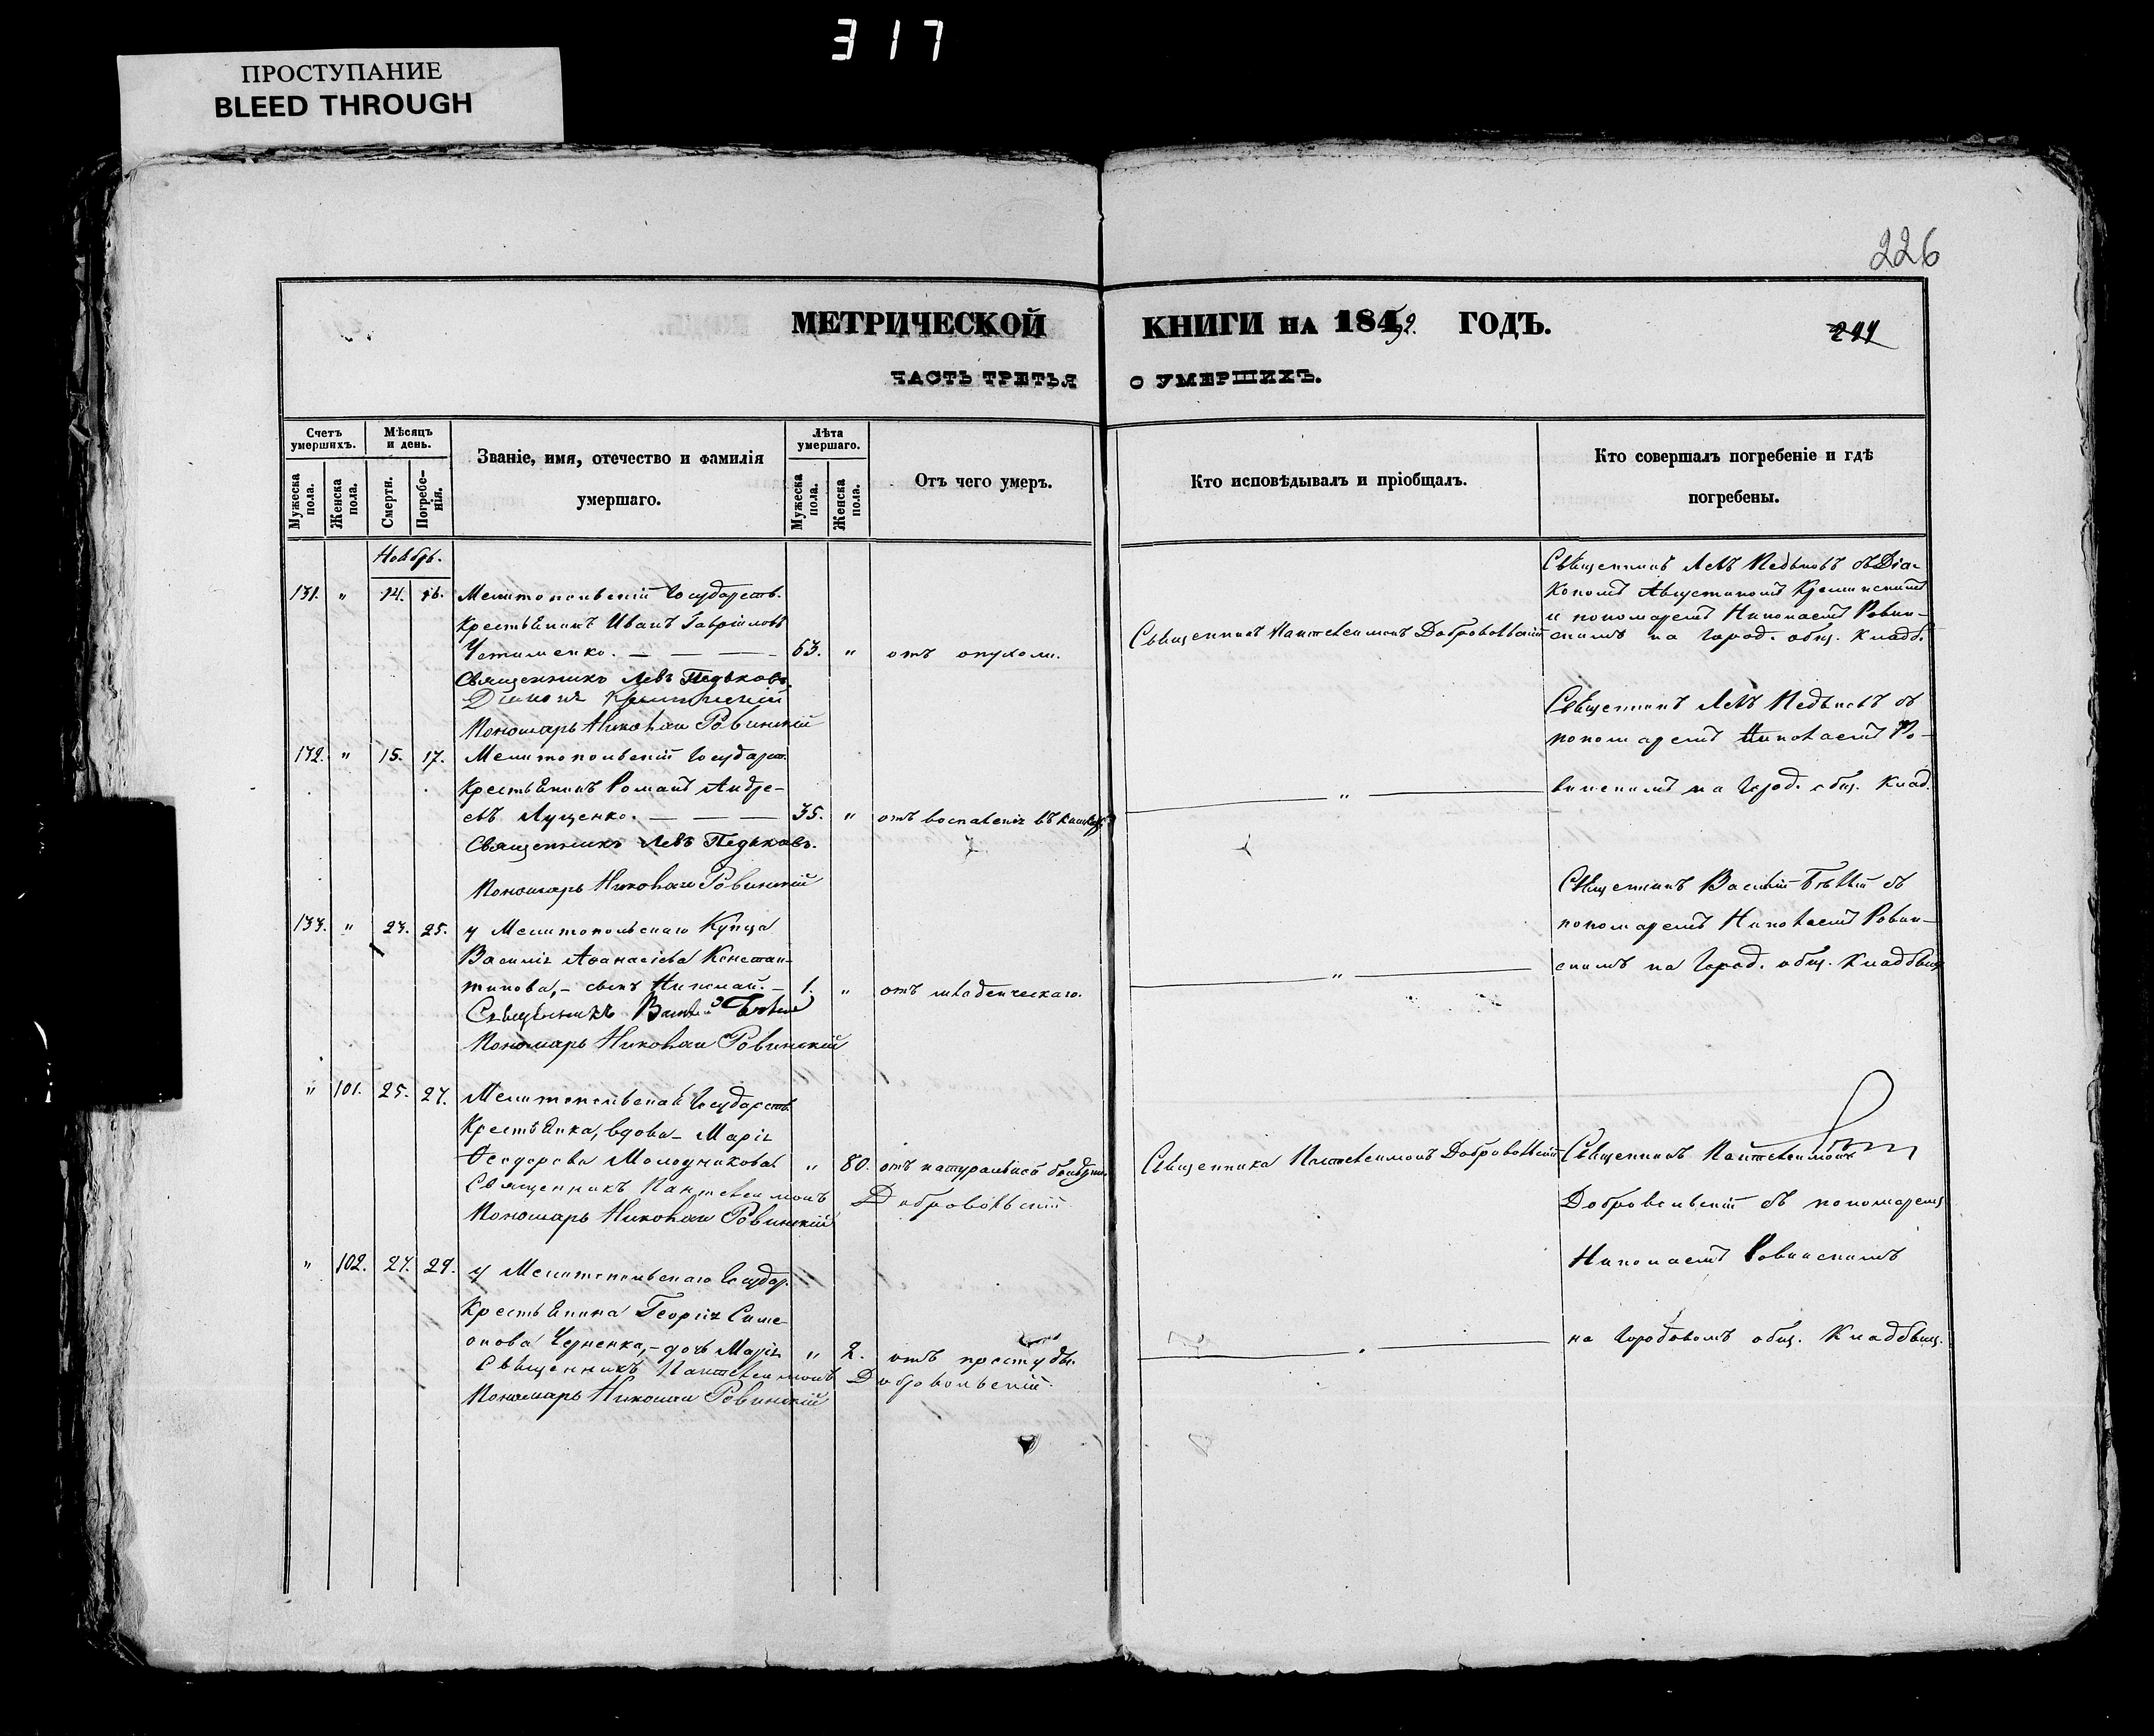 317
ПРОСТУПАНИЕ
BLEED THROUGH
226
МЕТРИЧЕСКОЙ КНИГИ НА 1852. ГОДЪ.
ЧАСТЬ ТРЕТЬЯ О УМЕРШИХЪ.
Счетъ умершихъ.
Мѣсяцъ и день.
Званіе, имя, отечество и фамилія умершаго.
Лѣта умершаго.
Отъ чего умеръ.
Кто исповѣдывалъ и пріобщалъ.
Кто совершалъ погребеніе и гдѣ погребены.
Мужеска пола.
Женска пола.
Смерти.
Погребенія.
Мужеска пола.
Женска пола.
Ноябрь.
131. " 14. 16. Мелитопольскій Государств.
крестьянинъ Иванъ Гавріиловъ
Устименко. — — — 63. " отъ опухоли.
Священникъ Пантелеимонъ Добровольскій
Священникъ Левъ Педьковъ съ Діа-
кономъ Августиномъ
и пономаремъ Николаемъ Ровин-
скимъ на Город. общ. кладб.
Священникъ Левъ Педьковъ
Пономарь Николай Ровинскій
132. " 15. 17. Мелитопольскій Государст.
крестьянинъ Романъ Андре-
евъ Луценко. — — — 35. " отъ воспаленія въ
— " —
Священникъ Левъ Педьковъ съ
пономаремъ Николаемъ Ро-
винскимъ на Город. общ. клад.
Священникъ Левъ Педьковъ.
Пономарь Николай Ровинскій
133. " 23. 25. у Мелитопольскаго Купца
Василія Аѳанасіева Констан-
тинова, – сынъ Николай. – 1. " отъ младенческаго.
— " —
Священникъ Василій Бѣлый съ
пономаремъ Николаемъ Ровин-
скимъ на Город. общ. кладбищ.
Священникъ Василій Бѣлый
Пономарь Николай Ровинскій
" 101. 25. 27. Мелитопольская Государств.
крестьянка, вдова – Марія
Ѳеодорова Молодчикова " 80. отъ натуральной
Священника Пантелеимонъ Добровольскій
Священникъ Пантелеимонъ
Добровольскій съ пономаремъ
Николаемъ Ровинскимъ
на Городовомъ общ. кладбищ.
Священникъ Пантелеимонъ Добровольскій
Пономарь Николай Ровинскій
" 102. 27. 29. у Мелитопольскаго Государ.
крестьянина Георгія Симе-
онова Черненка, – дочь Марія " 2. отъ простуды.
Священникъ Пантелеимонъ Добровольскій.
Пономарь Николай Ровинскій